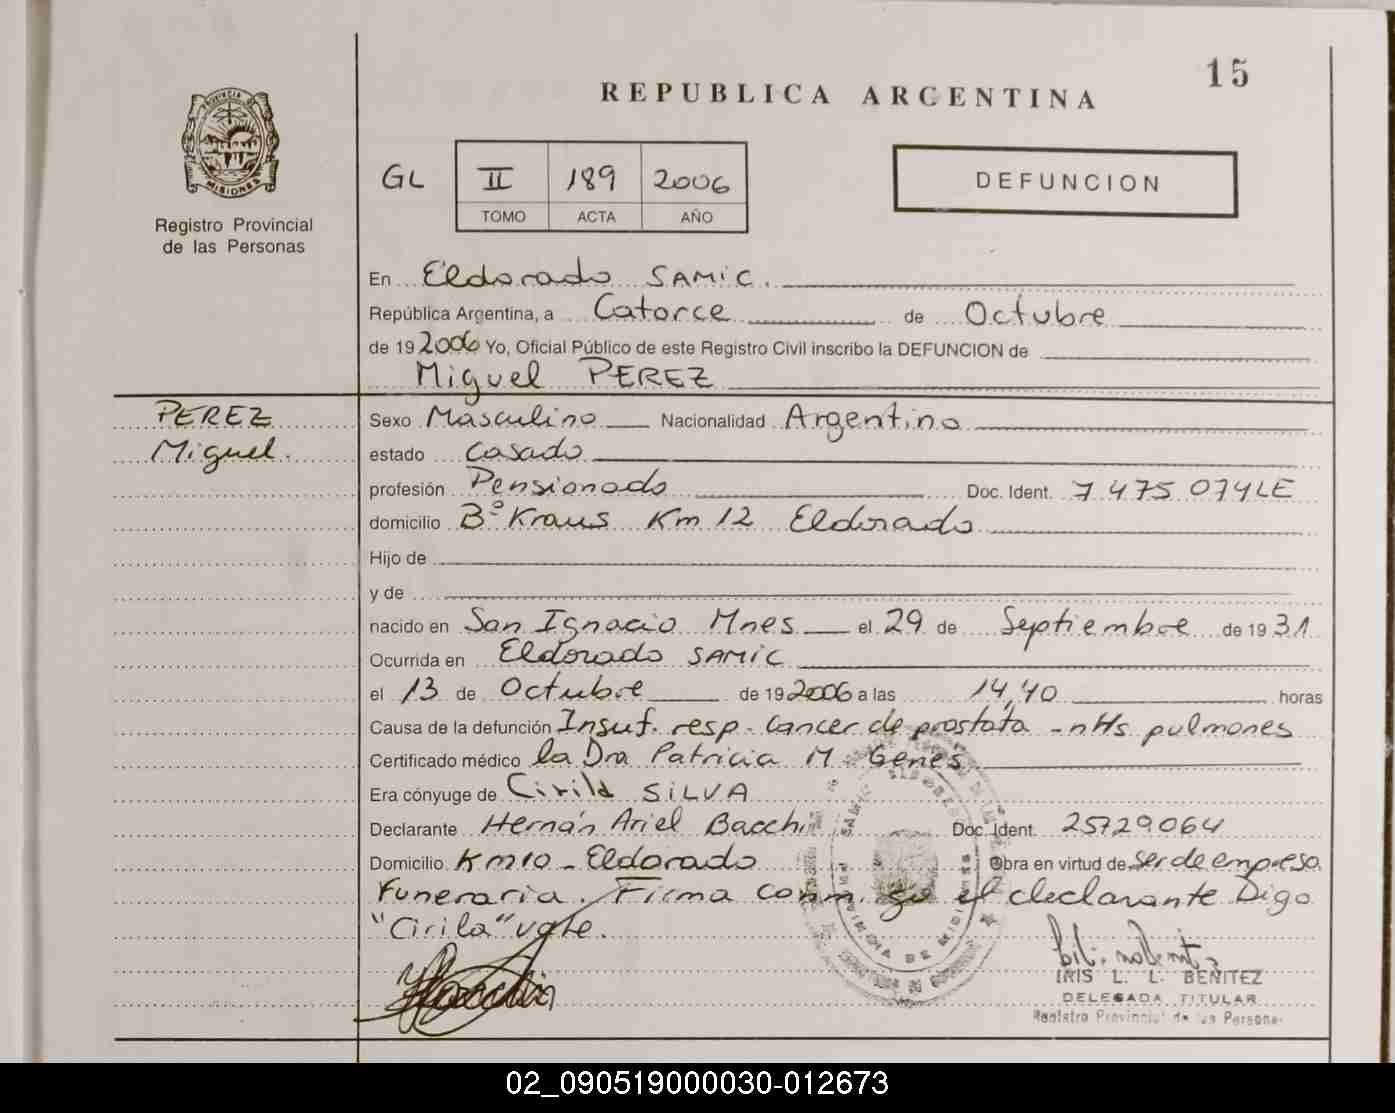 15
REPUBLICA ARGENTINA
PROVINCIA DE
MISIONES
Registro Provincial
de las Personas
GL II 189 2006
TOMO ACTA AÑO
DEFUNCION
En Eldorado SAMIC.
República Argentina, a Catorce de Octubre
de 19 2006 Yo, Oficial Público de este Registro Civil inscribo la DEFUNCION de
Miguel PEREZ
PEREZ
Miguel.
Sexo Masculino Nacionalidad Argentino
estado Casado
profesión Pensionado Doc. Ident. 7 475 074LE
domicilio Bº Kraus Km 12 Eldorado
Hijo de
y de
nacido en San Ignacio Mnes el 29 de Septiembre de 19 31
Ocurrida en Eldorado SAMIC
el 13 de Octubre de 19 2006 a las 14,40 horas
Causa de la defunción Insuf. resp. cancer de prostata - nHs pulmones
Certificado médico la Dra Patricia M. Genes
Era cónyuge de Cirild SILVA
Declarante Hernán Ariel Bacchi Doc. Ident. 25729064
Domicilio Km 10 - Eldorado Obra en virtud de Ser de empresa
Funeraria. Firma conm. go el declarante Digo
"Cirila" vale.
IRIS L. L. BENITEZ
DELEGADA TITULAR
Registro Provincial de las Personas
02_090519000030-012673